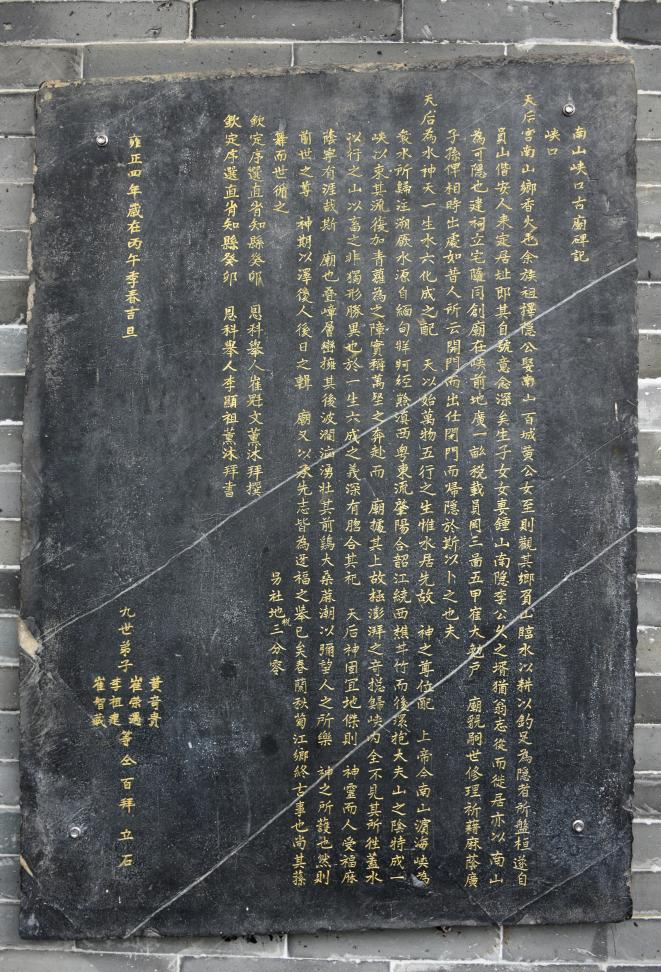 南山峽口古廟碑記
峽口
天后宮南山鄉香火也余族祖擇隱公娶南山百城黃公女至則觀其鄉負山臨水以耕以釣足為隱者所盤桓遂自
員山偕安人來定居址即其自號意念深矣生子女女妻鍾山南隱李公父之壻猶翁志從而徙居亦以南山
為可隱也建祠立宅隨同創廟在峽前地廣一畝稅載員岡三啚五甲崔大勉戶 廟貌嗣世修理祈藉庥蔭廣
子孫俾相時出處如昔人所云開門而出仕閉門而歸隱於斯以卜之也夫
天后為水神天一生水六化成之配 天以始萬物五行之生惟水居先故 神之尊位配 上帝今南山濵海峽為
衆水所歸注溯厥水源自緬甸牂牁經黔滇西粵東流肇陽合韶江繞西樵井竹而後環抱大夫山之陰特成一
峽以束其流後加青蘿為之障實稱萬壑之奔赴而 廟據其上故極澎湃之音挹歸峽內全不見其所徃蓋水
以行之山以畜之非獨形勝異也於一生六成之義深有脗合其祀 天后神固宜地傑則 神靈而人受福庥
蔭寧有涯哉斯 廟也叠嶂層巒擁其後波瀾洶湧壯其前鷄犬桑蔴潮以彌望人之所樂 神之所護也然則
前世之尊 神期以澤後人後日之輯 廟又以承先志皆為迓福之舉已矣春蘭秋菊江鄉終古事也尚其藻
舞而世循之 另社地稅三分零
欽定序選直省知縣癸卯 恩科舉人崔冠文薰沐拜撰
欽定序選直省知縣癸卯 恩科舉人李顯祖薰沐拜書
雍正四年歲在丙午季春吉旦
九世弟子 黃奇貴 崔榮 李祖建 崔智 等仝百拜 立石